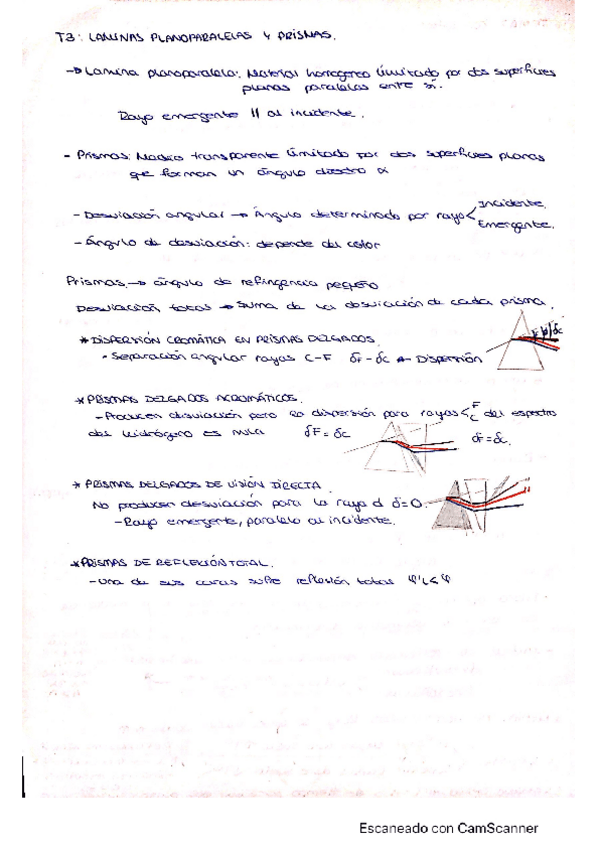 T3: LAMINAS PLANOPARALELAS Y PRISMAS.
→ Lamina planoparalela: Material homogeneo limitado por dos superficies
planas paralelas entre si.
Rayo emergente || al incidente.
- Prismas: Medio transparente limitado por dos superficies planas
que forman un ángulo diedro α
- Desviación angular → Ángulo determinado por rayo < Incidente.
Emergente.
- Ángulo de desviación: depende del color
Prismas → ángulo de refringencia pequeño
Desviación total → Suma de la desviación de cada prisma.
* DISPERSIÓN CROMÁTICA EN PRISMAS DELGADOS.
• Separación angular rayas C-F δF - δC ← DISPERSIÓN
* PRISMAS DELGADOS ACROMÁTICOS.
- Producen desviación pero la dispersión para rayas < F C del espectro
del hidrógeno es nula δF = δC δF = δC.
* PRISMAS DELGADOS DE VISIÓN DIRECTA
No producen desviación para la raya d δ=0.
- Rayo emergente, paralelo al incidente.
* PRISMAS DE REFLEXIÓN TOTAL.
- Una de sus caras sufre reflexión total φ'L < φ
Escaneado con CamScanner